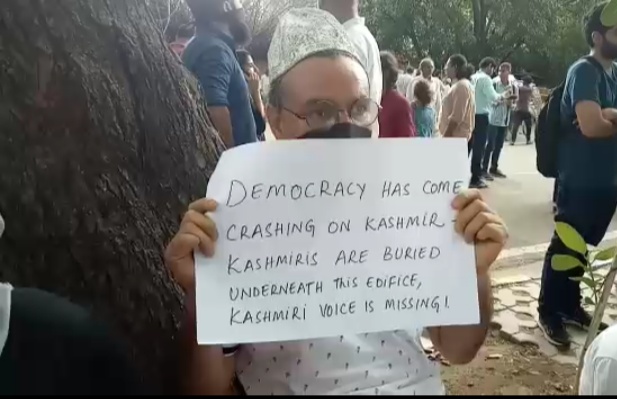 DEMOCRACY HAS COME
CRASHING ON KASHMIR
KASHMIRIS ARE BURIED
UNDERNEATH THIS EDIFICE,
KASHMIRI VOICE IS MISSING!